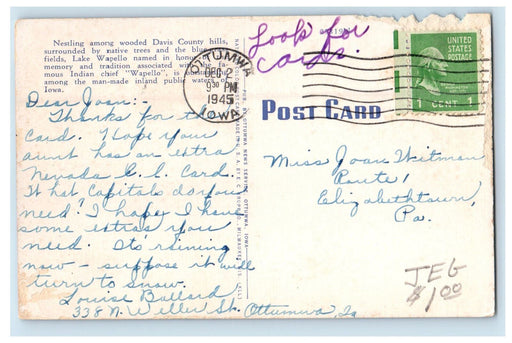 Nestling among wooded Davis County hills,
surrounded by native trees and the blue
fields, Lake Wapello named in honor
memory and tradition associated with the fa-
mous Indian chief "Wapello", is
among the man-made inland public waters of
Iowa.
Look for
cards.
OTTUMWA
DEC 2
9 30 PM
1945
IOWA
UNITED
STATES
POSTAGE
1 CENT 1
POST CARD
Dear Joan:-
Thanks for the
card. Hope your
aunt has an extra
Nevada C. C. Card.
What Capitals do you
need? I hope I have
some extras you
need. It's raining
now - suppose it will
turn to snow.
Louise Ballard
338 N. Weller St. Ottumwa, Ia
Miss Joan Witman
Route 1
Elizabethtown,
Pa.
JEG
$1.00